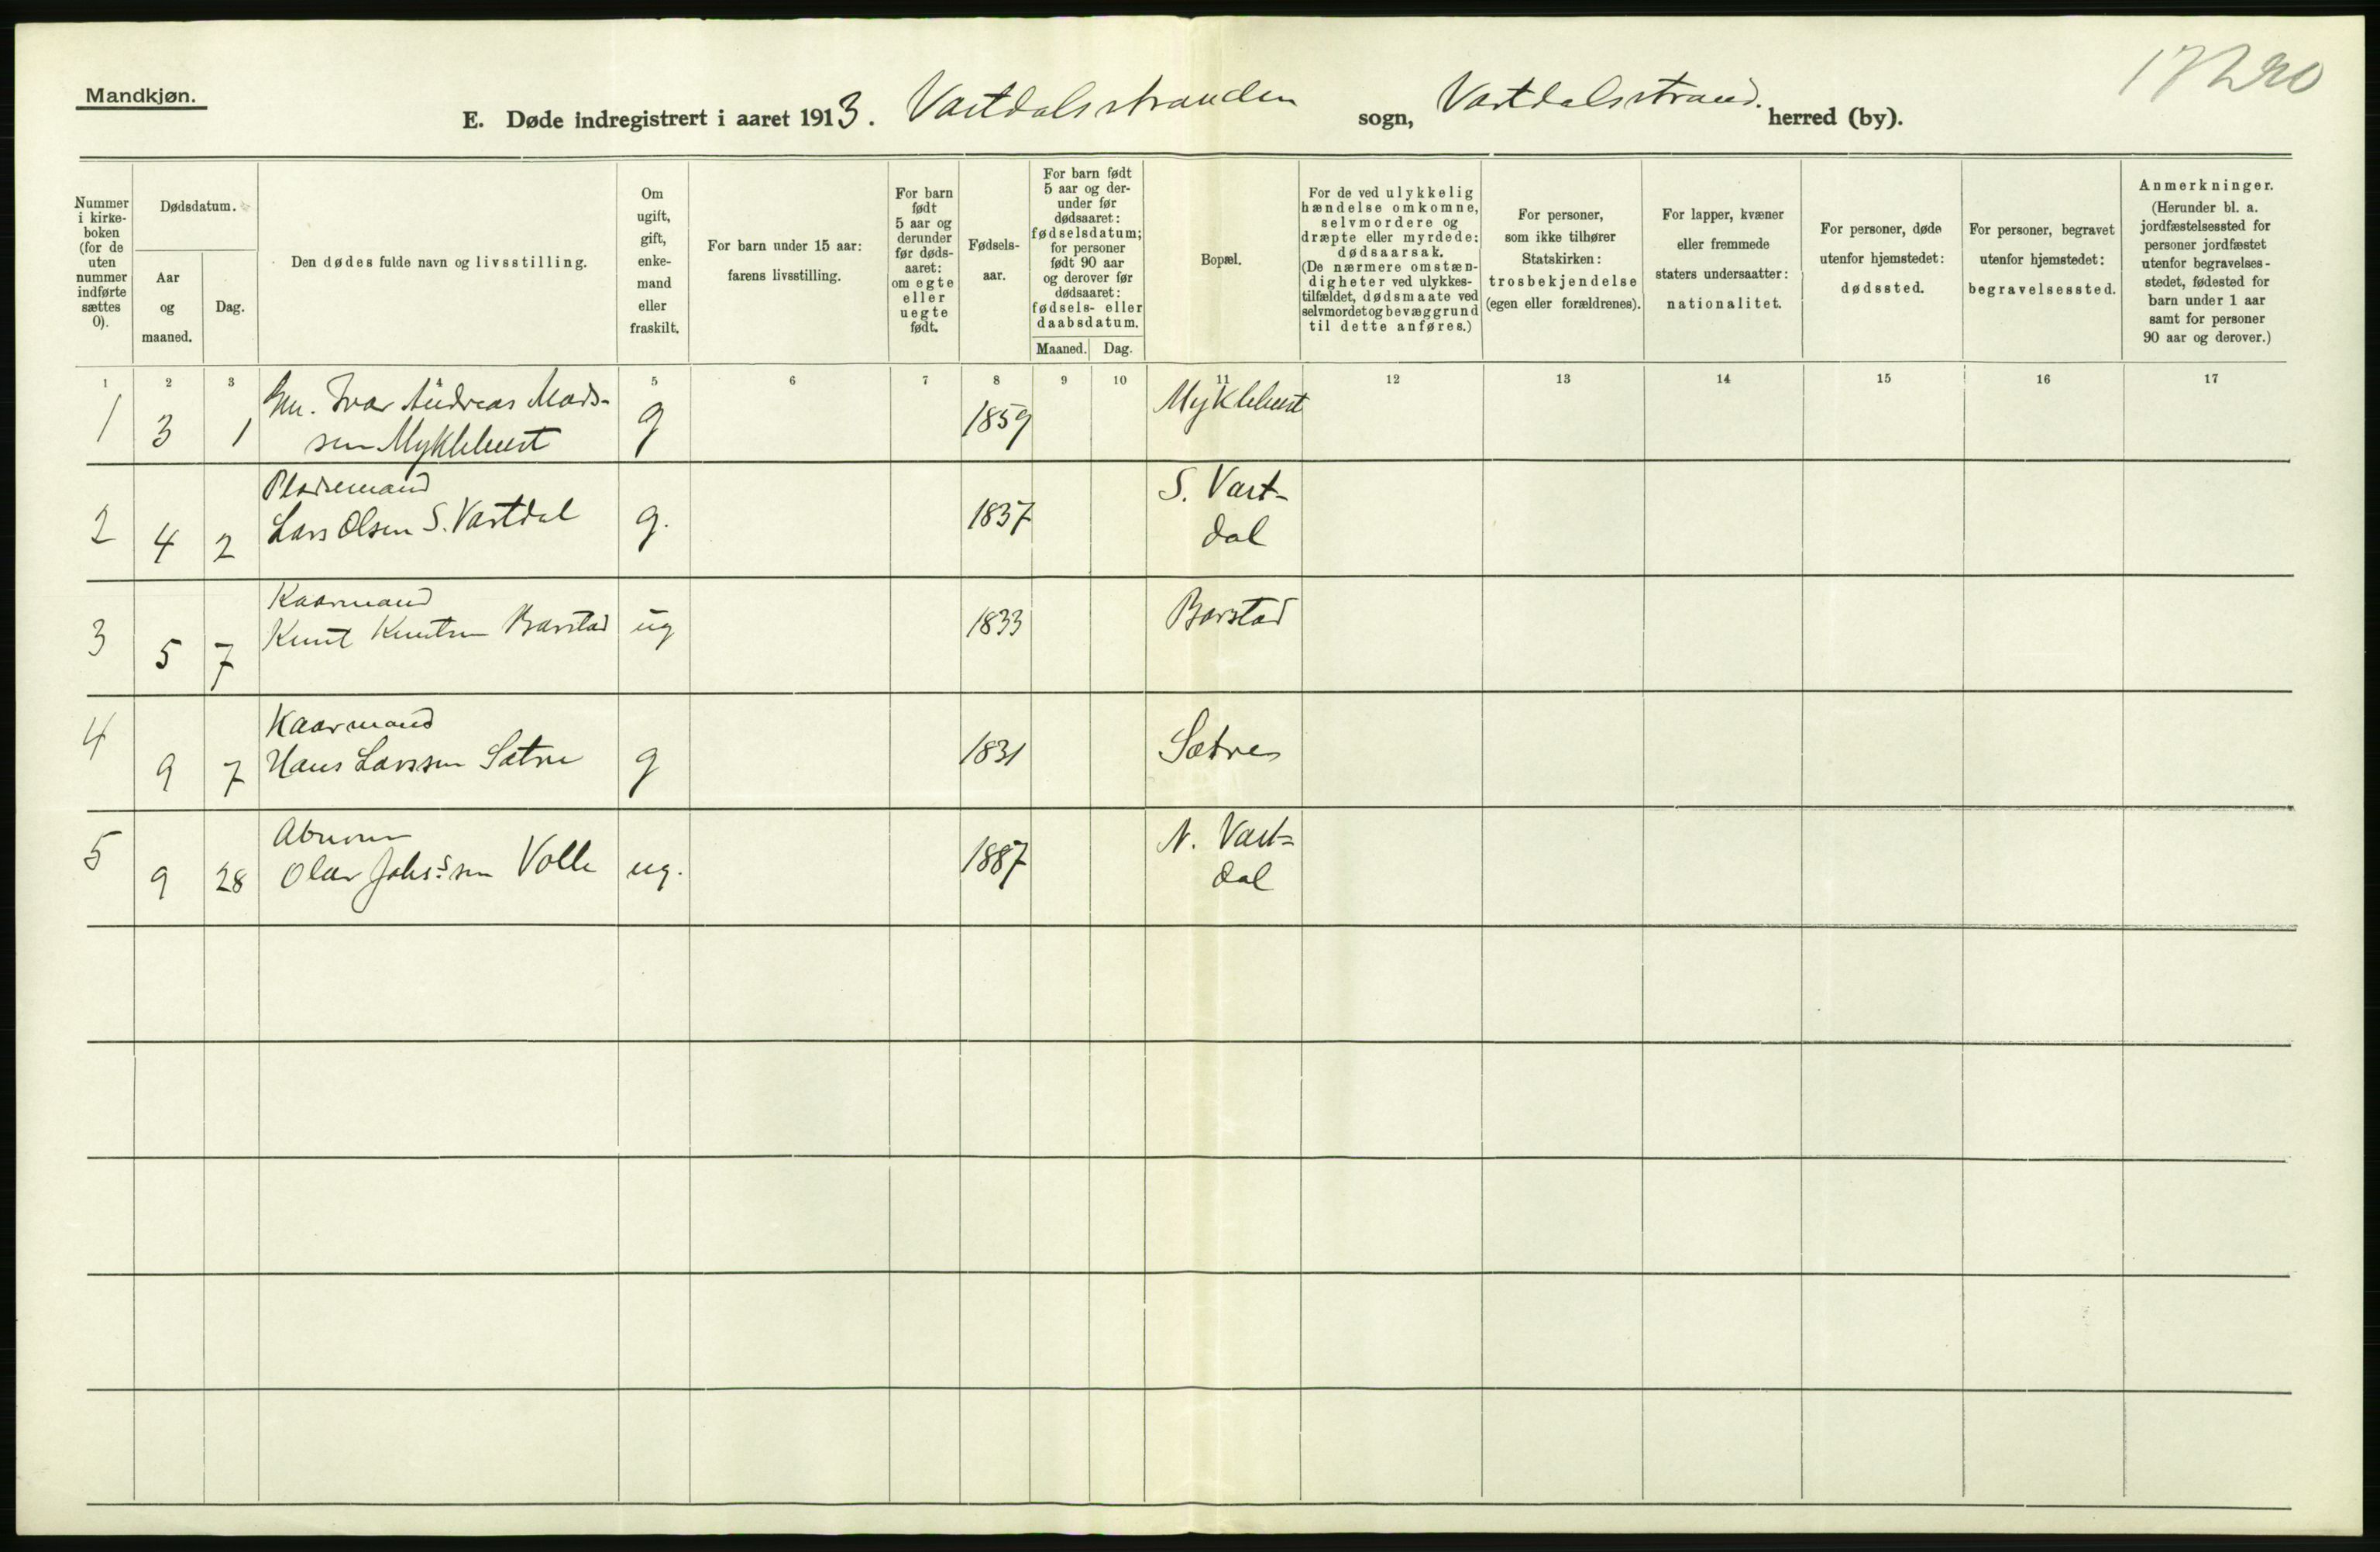 17220
Mandkjøn.
E. Døde indregistrert i aaret 1913. Vartdalsstranden sogn, Vartdalsstrand. herred (by).
Nummer
i kirke-
boken
(for de
uten
nummer
indførte
sættes
0).
Dødsdatum.
Aar
og
maaned.
Dag.
Den dødes fulde navn og livsstilling.
Om
ugift,
gift,
enke-
mand
eller
fraskilt.
For barn under 15 aar:
farens livsstilling.
For barn
født
5 aar og
derunder
før døds-
aaret:
om egte
eller
uegte
født.
Fødsels-
aar.
For barn født
5 aar og der-
under før
dødsaaret:
fødselsdatum;
for personer
født 90 aar
og derover før
dødsaaret:
fødsels- eller
daabsdatum.
Maaned. Dag.
Bopæl.
For de ved ulykkelig
hændelse omkomne,
selvmordere og
dræpte eller myrdede:
dødsaarsak.
(De nærmere omstæn-
digheter ved ulykkes-
tilfældet, dødsmaate ved
selvmordet og bevæggrund
til dette anføres.)
For personer,
som ikke tilhører
Statskirken:
trosbekjendelse
(egen eller forældrenes).
For lapper, kvæner
eller fremmede
staters undersaatter:
nationalitet.
For personer, døde
utenfor hjemstedet:
dødssted.
For personer, begravet
utenfor hjemstedet:
begravelsessted.
Anmerkninger.
(Herunder bl. a.
jordfæstelsessted for
personer jordfæstet
utenfor begravelses-
stedet, fødested for
barn under 1 aar
samt for personer
90 aar og derover.)
1 2 3 5 6 7 8 9 10 11 12 13 14 15 16 17
Gm. Ivar Andreas Mads-
1 3 1 sen Myklebust g 1859 Myklebust
Pladsemand
2 4 2 Lars Olsen S. Vartdal g. 1837 S. Vart-
dal
Kaarmand
3 5 7 Knut Knutsen Barstad ug 1833 Barstad
Kaarmand
4 9 7 Hans Larssen Sætre g 1831 Sætre
5 9 28 Olav Johs.sen Volle ug. 1887 N. Vart-
dal